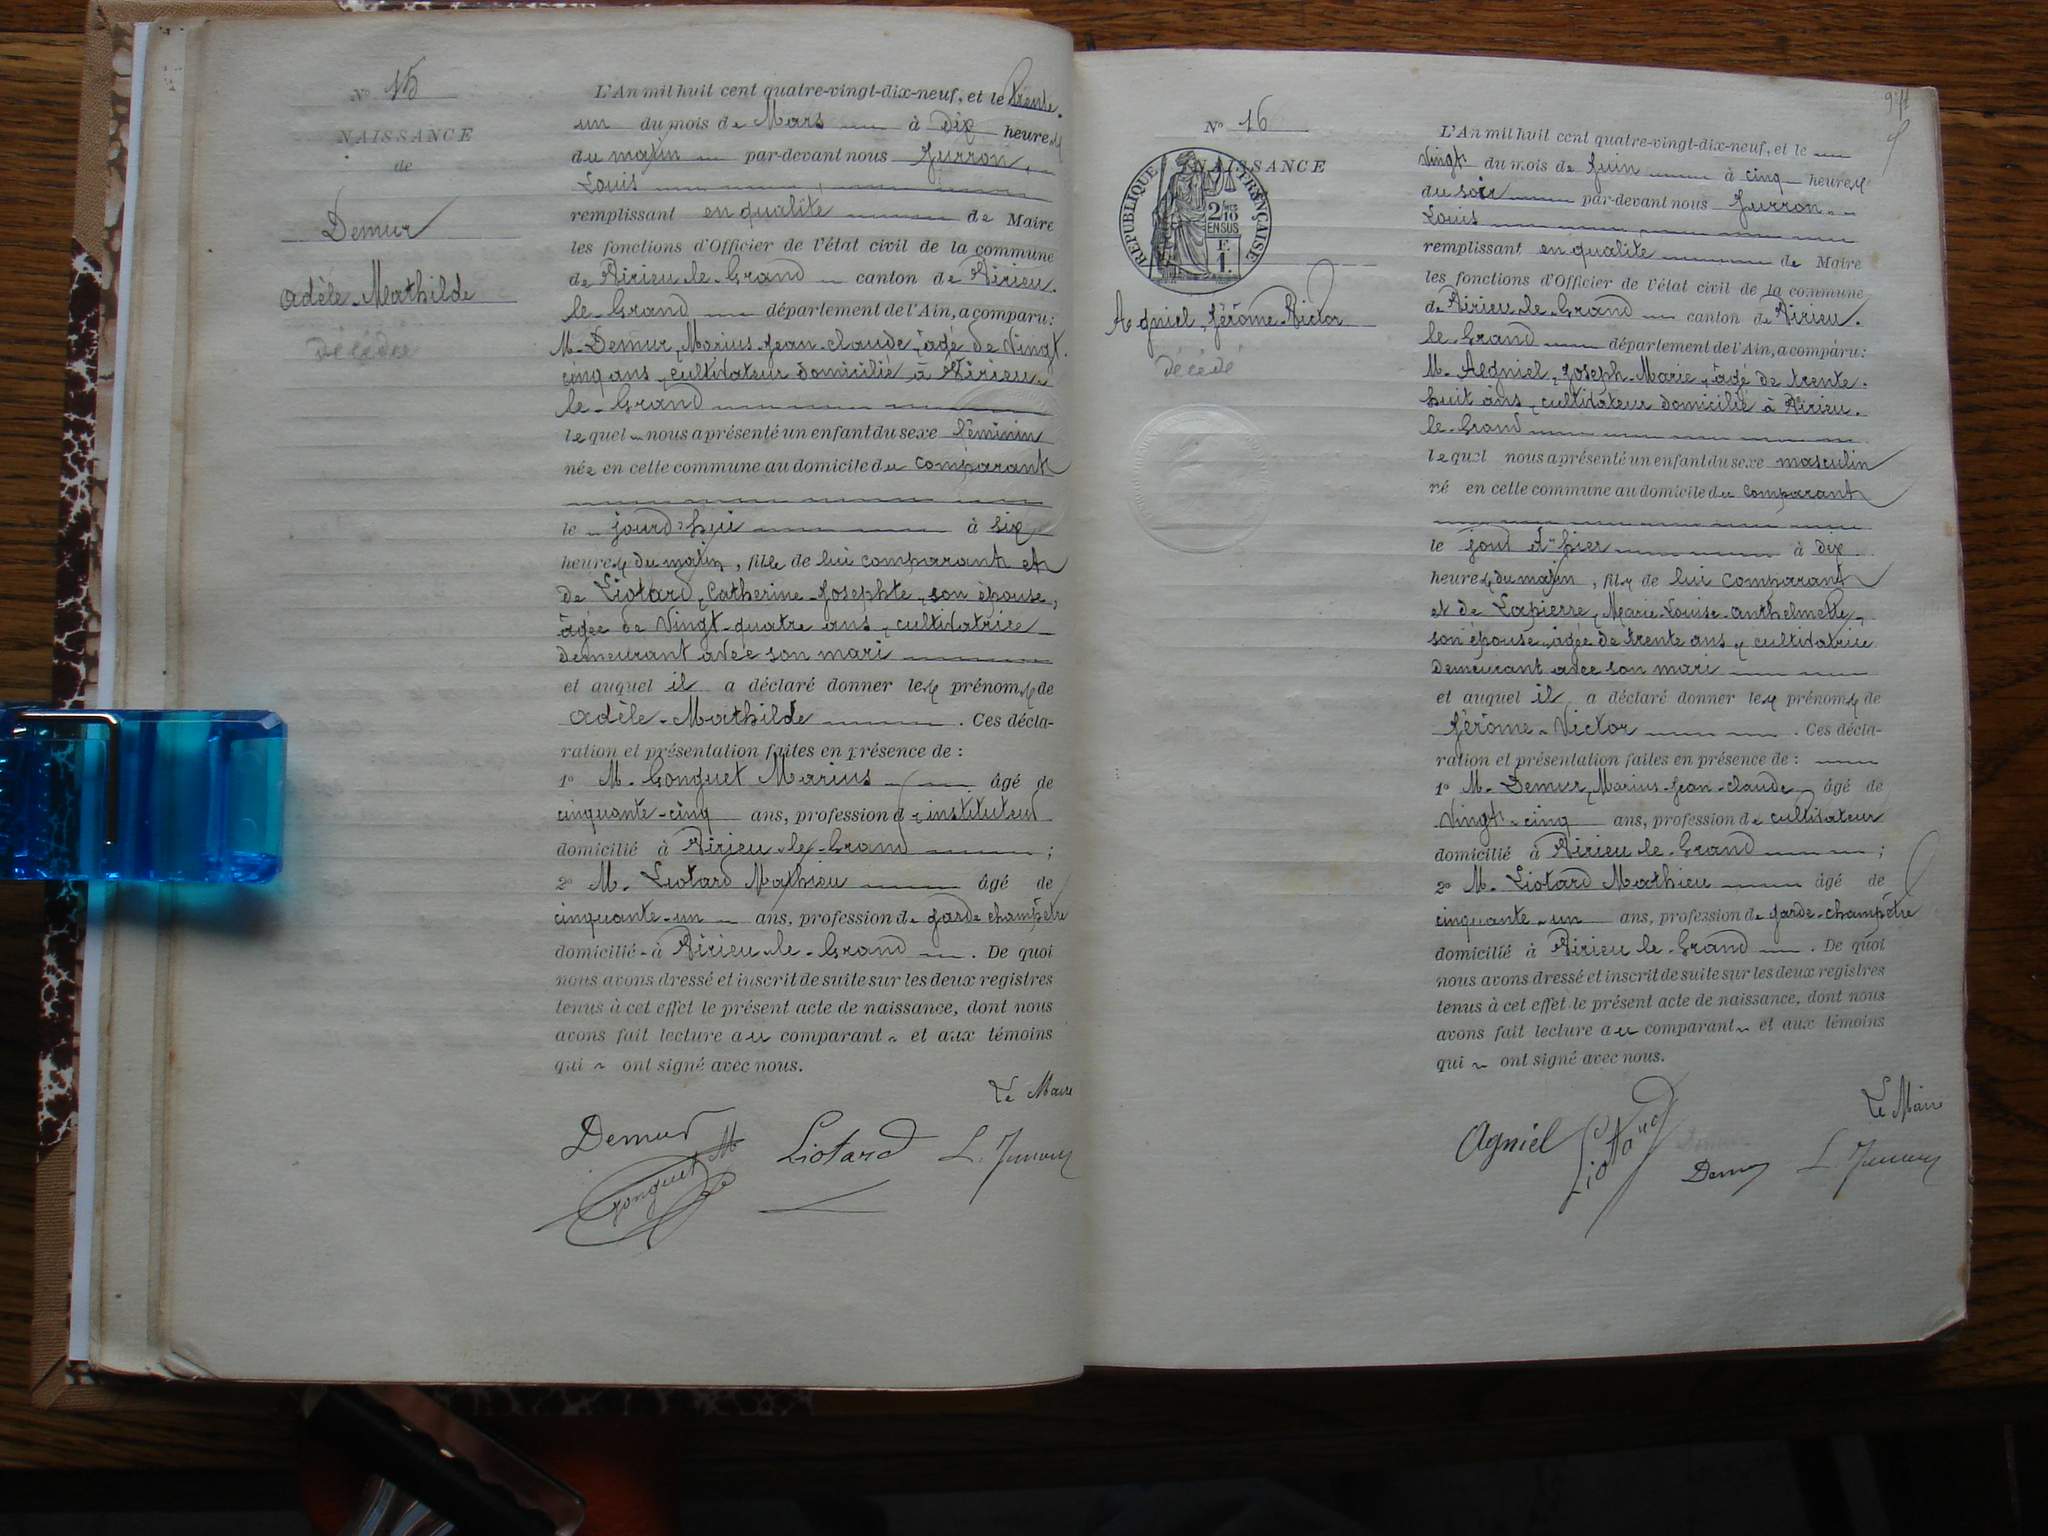 N° 15
NAISSANCE
de
Demur
Adèle-Mathilde
décédée
L'An mil huit cent quatre-vingt-dix-neuf, et le trente
un du mois de Mars à dix heures
du matin par-devant nous Jurron,
Louis
remplissant en qualité de Maire
les fonctions d'Officier de l'état civil de la commune
de Virieu-le-Grand canton de Virieu-
le-Grand département de l'Ain, a comparu:
M. Demur, Marius-Jean-Claude, âgé de vingt-
cinq ans, cultivateur domicilié à Virieu-
le-Grand
lequel nous a présenté un enfant du sexe féminin
née en cette commune au domicile du comparant
le jourd'hui à six
heures du matin, fille de lui comparant et
de Liotard, Catherine-Josephte, son épouse,
âgée de vingt-quatre ans, cultivatrice
demeurant avec son mari
et auquel il a déclaré donner les prénoms de
Adèle-Mathilde. Ces décla-
ration et présentation faites en présence de :
1° M. Gonguet Marius âgé de
cinquante-cinq ans, profession d' instituteur
domicilié à Virieu-le-Grand ;
2° M. Liotard Mathieu âgé de
cinquante-un ans, profession de garde champêtre
domicilié à Virieu-le-Grand. De quoi
nous avons dressé et inscrit de suite sur les deux registres
tenus à cet effet le présent acte de naissance, dont nous
avons fait lecture au comparant et aux témoins
qui ont signé avec nous.
Le Maire
Demur Liotard L. Jurron
Gonguet M
N° 16
NAISSANCE
RÉPUBLIQUE FRANÇAISE
2/10
EN SUS
1 F.
Agniel, Jérôme-Victor
décédé
L'An mil huit cent quatre-vingt-dix-neuf, et le
vingt du mois de Juin à cinq heures
du soir par-devant nous Jurron
Louis
remplissant en qualité de Maire
les fonctions d'Officier de l'état civil de la commune
de Virieu-le-Grand canton de Virieu-
le-Grand département de l'Ain, a comparu:
M. Aegniel, Joseph-Marie, âgé de trente-
huit ans, cultivateur domicilié à Virieu-
le-Grand
lequel nous a présenté un enfant du sexe masculin
né en cette commune au domicile du comparant
le jour d'hier à dix
heures du matin, fils de lui comparant
et de Lapierre, Marie-Louise-Anthelmette,
son épouse, âgée de trente ans, cultivatrice
demeurant avec son mari
et auquel il a déclaré donner les prénoms de
Jérôme-Victor. Ces décla-
ration et présentation faites en présence de :
1° M. Demur, Marius-Jean-Claude âgé de
vingt-cinq ans, profession de cultivateur
domicilié à Virieu-le-Grand ;
2° M. Liotard Mathieu âgé de
cinquante-un ans, profession de garde-champêtre
domicilié à Virieu-le-Grand. De quoi
nous avons dressé et inscrit de suite sur les deux registres
tenus à cet effet le présent acte de naissance, dont nous
avons fait lecture au comparant et aux témoins
qui ont signé avec nous.
Le Maire
Agniel Liottard Demur L. Jurron